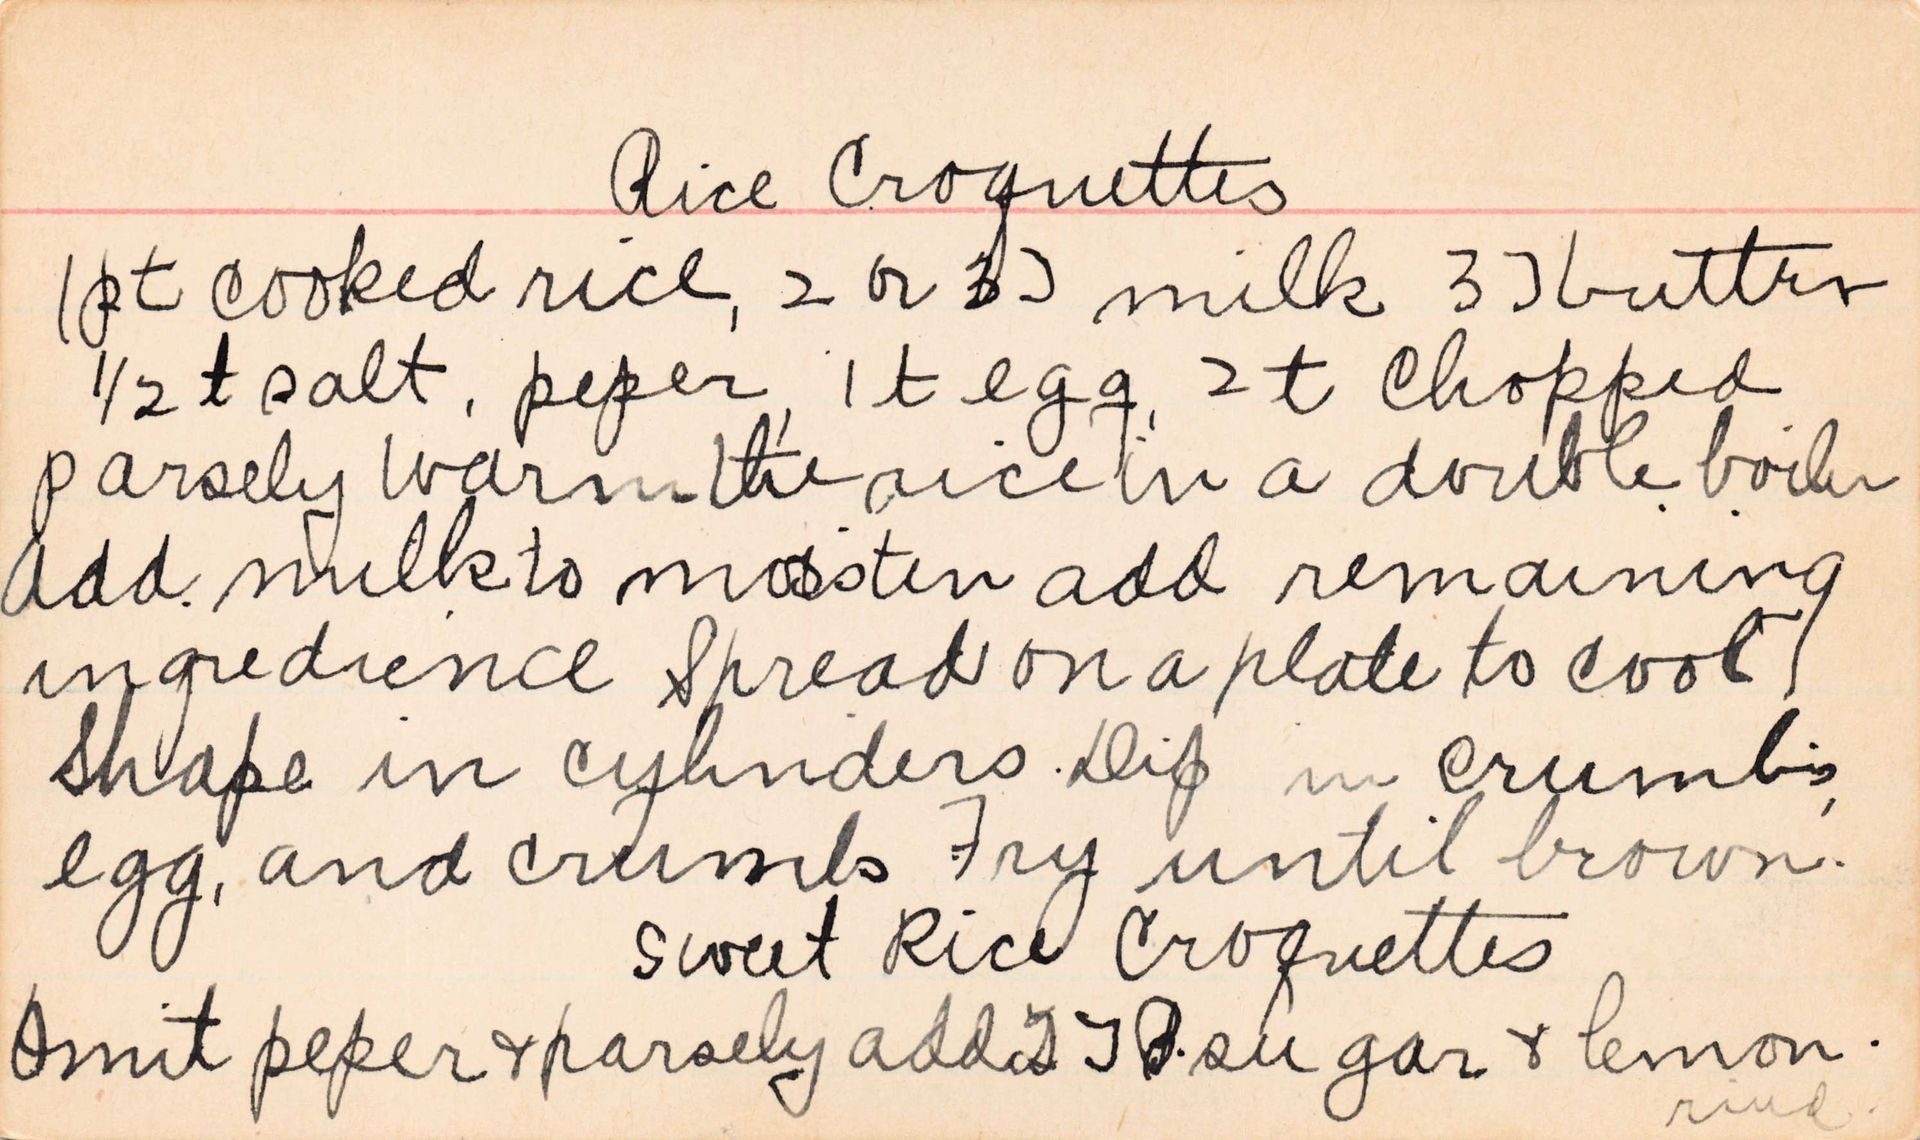 Rice Croquettes
1 pt cooked rice, 2 or 3 T milk 3 T butter
1/2 t salt, peper, 1 t egg, 2 t Chopped
parsely Warm the rice in a double boiler
Add. milk to moisten add remaining
ingredience Spread on a plate to cool
Shape in cylinders. Dip in crumbs,
egg, and crumbs Fry until brown.
Sweet Rice Croquettes
Omit peper & parsely add T sugar & lemon.
rind.